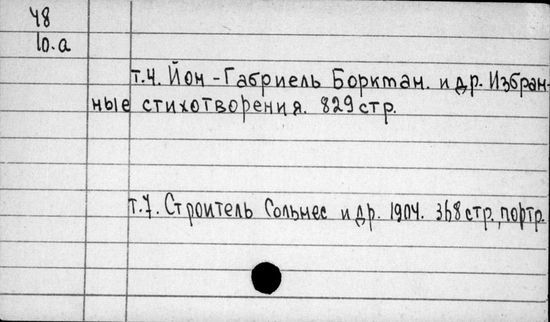 48
10.а
т.4. Йон-Габриель Борктан. и др. Избран-
ные стихотворения. 829 стр.
т.7. Строитель Сольнес и др. 1904. 368 стр., портр.